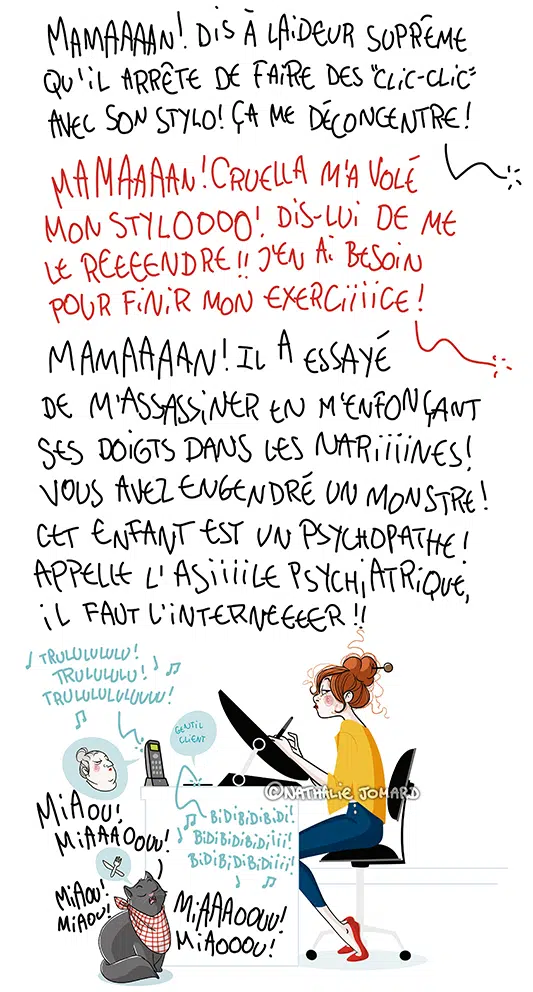 MAMAAAAN! DIS À LAIDEUR SUPRÊME
QU'IL ARRÊTE DE FAIRE DES "CLIC-CLIC"
AVEC SON STYLO! ÇA ME DÉCONCENTRE!
MAMAAAAN! CRUELLA M'A VOLÉ
MON STYLOOOO! DIS-LUI DE ME
LE REEEENDRE!! J'EN AI BESOIN
POUR FINIR MON EXERCIIIICE!
MAMAAAAN! IL A ESSAYÉ
DE M'ASSASSINER EN M'ENFONÇANT
SES DOIGTS DANS LES NARIIIINES!
VOUS AVEZ ENGENDRÉ UN MONSTRE!
CET ENFANT EST UN PSYCHOPATHE!
APPELLE L'ASIIIILE PSYCHIATRIQUE,
IL FAUT L'INTERNEEEER!!
TRULULULULU!
TRULULULU!
TRULULULULUUUU!
GENTIL
CLIENT
@NATHALIE JOMARD
BIDIBIDIBIDI!
BIDIBIDIBIDIIII!
BIDIBIDIBIDIIII!
MIAOU!
MIAAAOOUU!
MIAOU!
MIAOU!
MIAAAOOUU!
MIAOOOU!